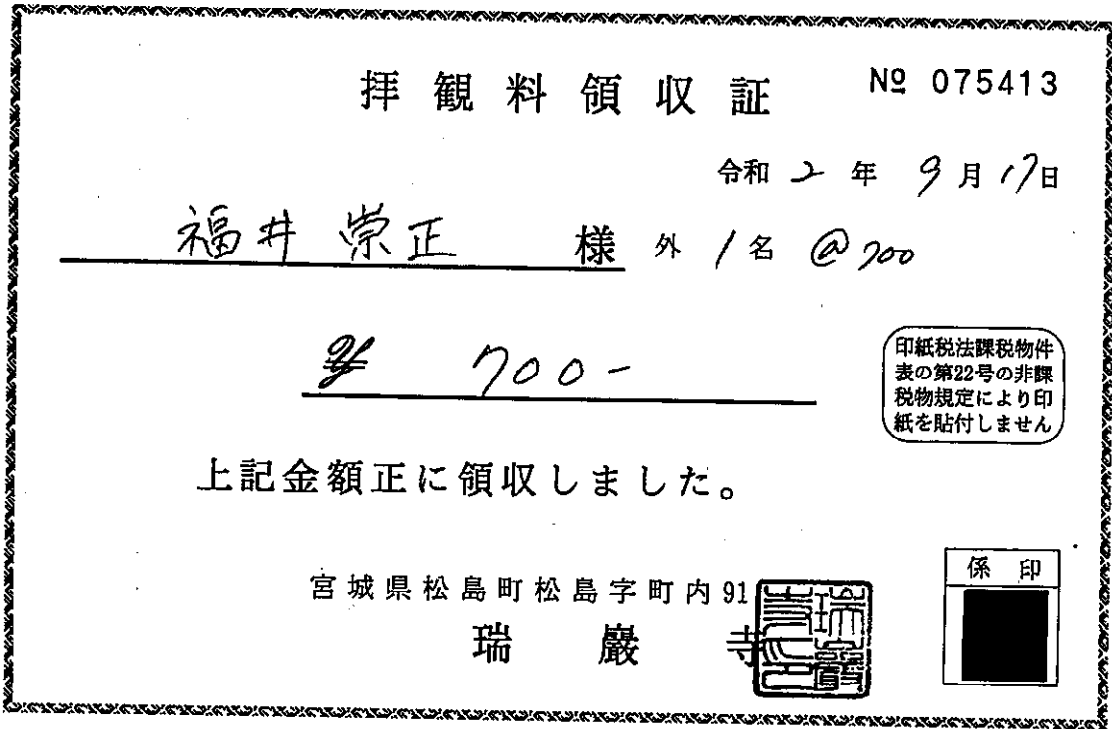 拝観料領収証 № 075413
令和 2 年 9 月 17日
福井 崇正 様 外 1 名 @700
¥ 700-
印紙税法課税物件
表の第22号の非課
税物規定により印
紙を貼付しません
上記金額正に領収しました。
宮城県松島町松島字町内91
瑞巌寺
係印